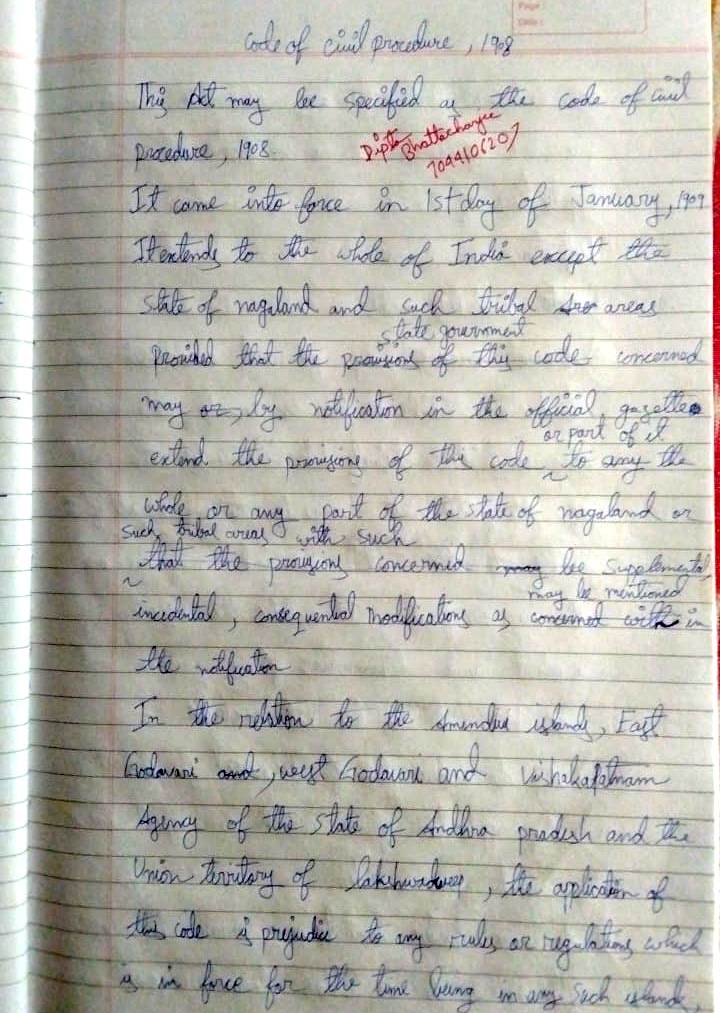 Page :
Date :
Code of civil procedure, 1908
This Act may be specified as the code of civil
procedure, 1908.
Dipta Bhattacharjee
7044106207
It came into force in 1st day of January, 1909
It extends to the whole of India except the
State of nagaland and such tribal areas
state government
Provided that the provisions of this code concerned
may by notification in the official gazette
or part of it
extend the provisions of this code to any the
whole or any part of the state of nagaland or
such tribal areas with such
that the provisions concerned may be supplemental,
may be mentioned
incidental, consequential modifications as concerned with in
the notification
In the relation to the Amindivi islands, East
Godavari and, west Godavari and Vishakapatnam
Agency of the state of Andhra pradesh and the
Union territory of lakshwadweep, the application of
this code is prejudice to any rules or regulations which
is in force for the time being in any such islands,